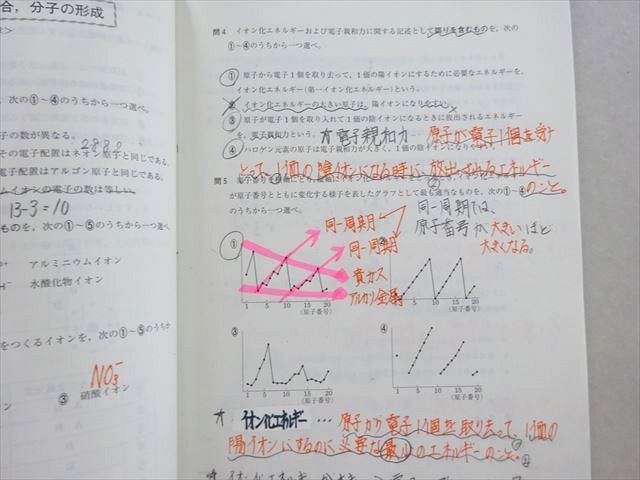 合，分子の形成
次の①～④のうちから一つ選べ。
子の数が異なる。
2880
その電子配置はネオン原子と同じである。
電子配置はアルゴン原子と同じである。
ムイオンの電子の数は等しい。
13-3=10
ものを，次の①～⑤のうちから
アルミニウムイオン
水酸化物イオン
をつくるイオンを，次の①～⑤のうちか
NO₃⁻
③ 硝酸イオン
問4 イオン化エネルギーおよび電子親和力に関する記述として誤りを含むものを，次の
①～④のうちから一つ選べ。
① 原子から電子1個を取り去って，1価の陽イオンにするために必要なエネルギーを，
イオン化エネルギー(第一イオン化エネルギー)という。
② イオン化エネルギーの大きい原子は，陽イオンになりやすい。
③ 原子が電子1個を取り入れて1価の陰イオンになるときに放出されるエネルギー
を，電子親和力という。
④ ハロゲン元素の原子は電子親和力が大きく，1価の陰イオンになりやすい。
電子親和力 原子が電子1個を受け
とって、1価の陰イオンになる時に放出されるエネルギー
のこと。
問5
が原子番号とともに変化する様子を表したグラフとして最も適当なものを，次の①～④
のうちから一つ選べ。
同一周期
同一周期
貴ガス
アルカリ金属
同一周期では、
原子番号が大きいほど
大きくなる。
①
1 5 10 15 20
(原子番号)
1 5 10 15 20
(原子番号)
③
1 5 10 15 20
(原子番号)
④
1 5 10 15 20
(原子番号)
イオン化エネルギー… 原子から電子1個を取り去って、1価の
陽イオンにするのに必要な最小のエネルギーのこと。